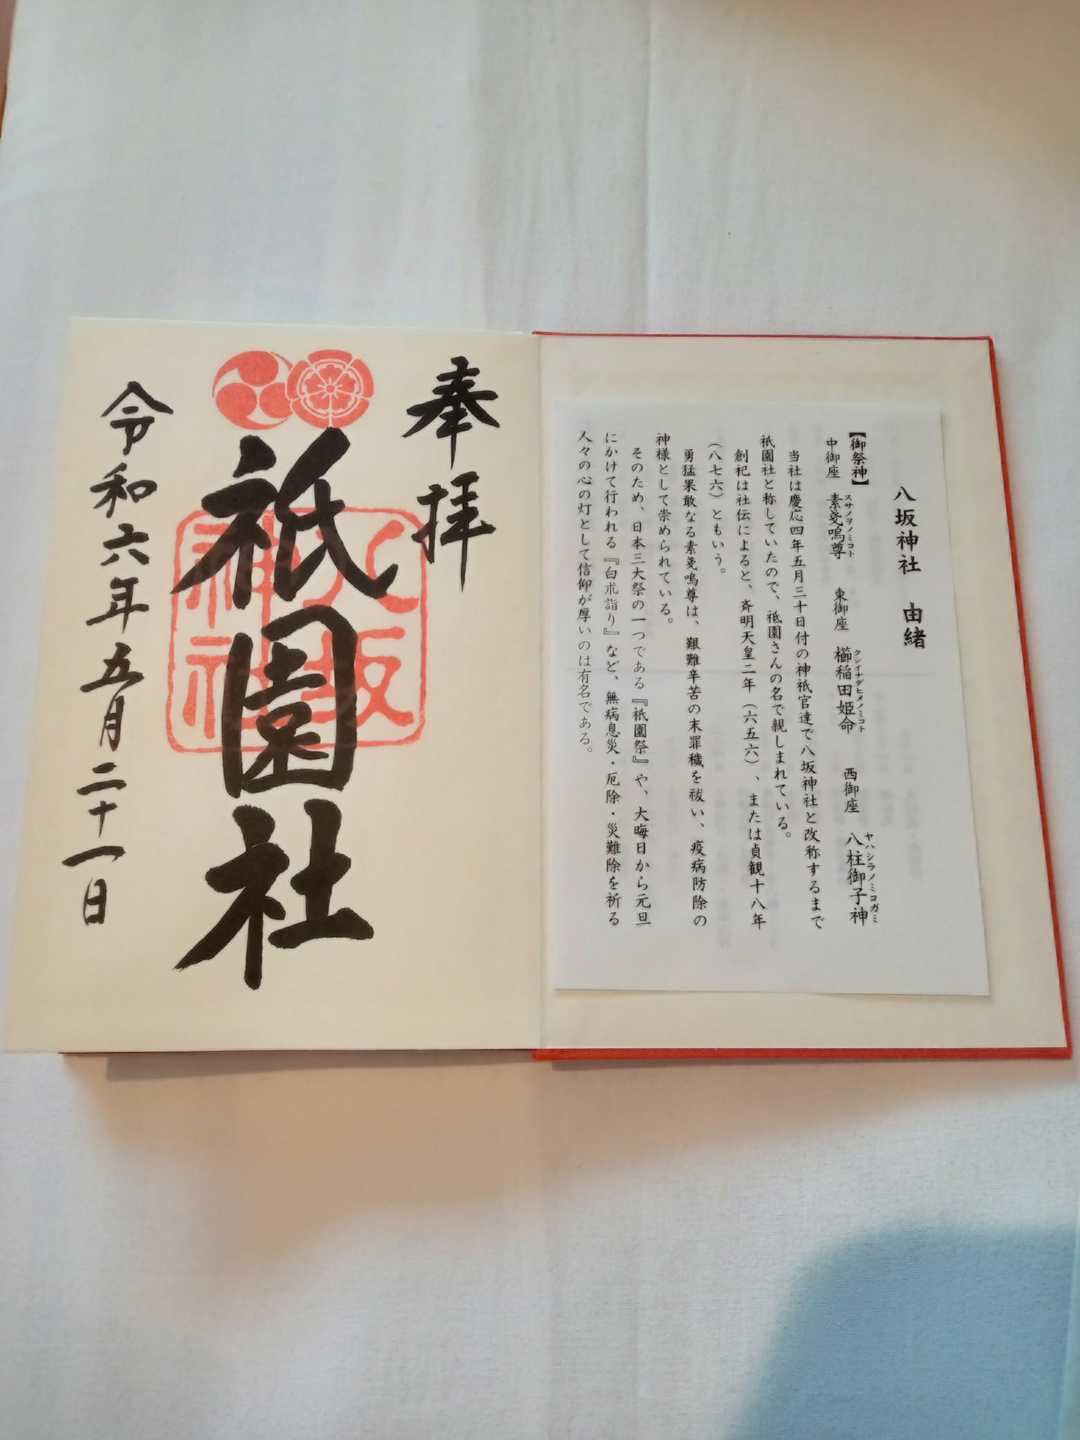 八坂神社 由緒
【御祭神】
中御座 素戔嗚尊 東御座 櫛稲田姫命 西御座 八柱御子神
スサノヲノミコト クシイナダヒメノミコト ヤハシラノミコガミ
当社は慶応四年五月三十日付の神祇官達で八坂神社と改称するまで
祇園社と称していたので、祇園さんの名で親しまれている。
創祀は社伝によると、斉明天皇二年(六五六)、または貞観十八年
(八七六)ともいう。
勇猛果敢なる素戔嗚尊は、艱難辛苦の末罪穢を祓い、疫病防除の
神様として崇められている。
そのため、日本三大祭の一つである『祇園祭』や、大晦日から元旦
にかけて行われる『白朮詣り』など、無病息災・厄除・災難除を祈る
人々の心の灯として信仰が厚いのは有名である。
奉拝
祇園社
八坂
神社
令和六年五月二十一日